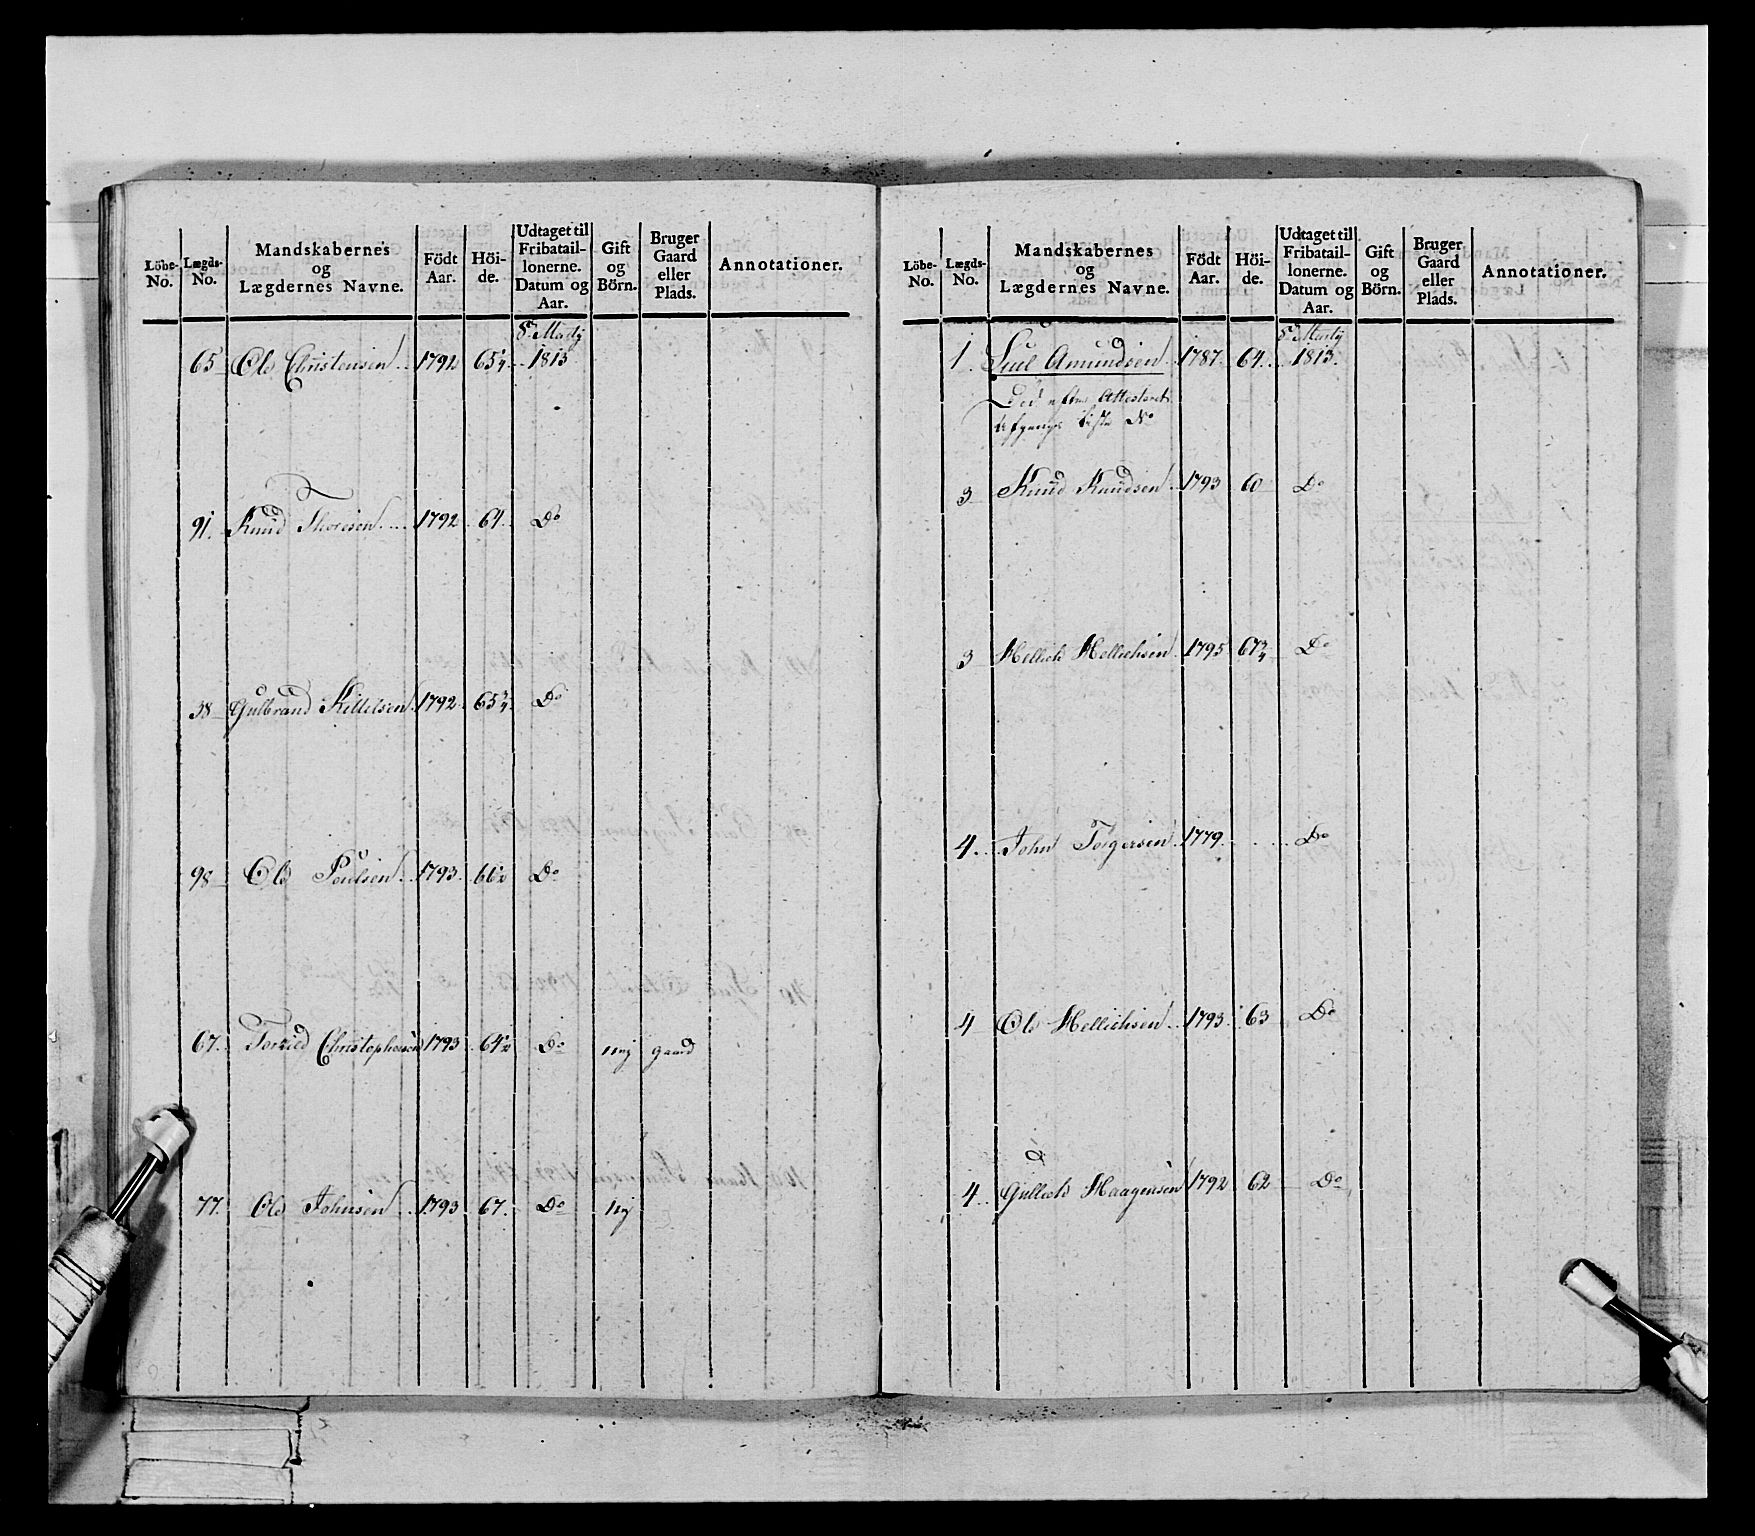 Löbe-No. Lægds-No. Mandskabernes og Lægdernes Navne. Födt Aar. Höi-de. Udtaget til Fribatail-lonerne. Datum og Aar. Gift og Börn. Bruger Gaard eller Plads. Annotationer.
65 Ole Christensen 1792 65 1/4 8de Martij 1813
91. Knud Thoresen 1792 64. Do
38 Gulbrand Kittelsen 1792 65 3/4 Do
98 Ole Poulsen 1793 66 1/2 Do
67. Christophersen 1793 64 1/2 Do nej gaard
77. Ole Johnsen 1793 67. Do nej
Löbe-No. Lægds-No. Mandskabernes og Lægdernes Navne. Födt Aar. Höi-de. Udtaget til Fribatail-lonerne. Datum og Aar. Gift og Börn. Bruger Gaard eller Plads. Annotationer.
1. Amundsen 1787. 64. 8de Martij 1813.
Død efter Attesteret
Afgangs Liste No
3 Knud Knudsen 1793 60 Do
3 Hellich Hellichsen 1795 67 3/4 Do
4. John Torgersen 1779. Do
4 Ole Hellichsen 1793 63 Do
4. Gullich Haagensen 1792 62 Do